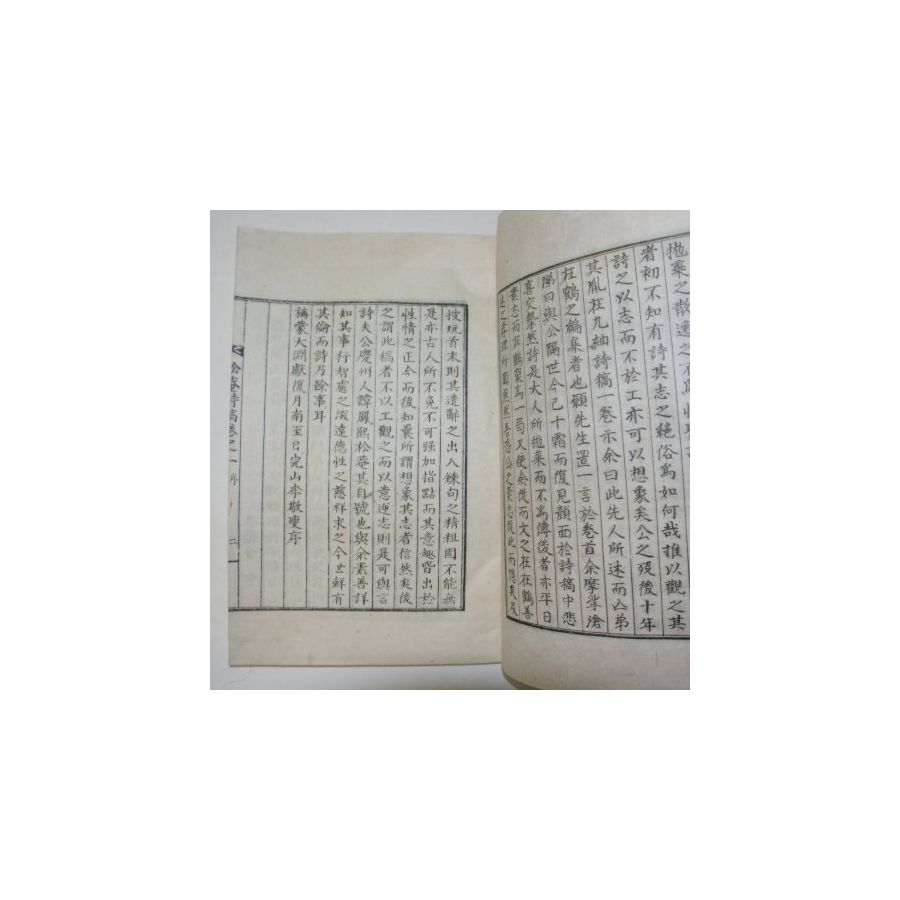 拖棄之散逸之不
者初不知有詩其志之絕俗爲如何哉推以觀之其
詩之以志而不於工亦可以想象矣公之歿後十年
其胤在九袖詩稿一卷示余曰此先人所述而亡弟
在鶴之編集者也願先生置一言於卷首余摩挲滄
涕曰與公隔世今已十霜而復見顔面於詩稿中悲
喜交摯然詩是大人所拖棄而不爲傳後者亦平日
素志而在鶴裒爲一
又使余從而文之在在鶴善
公之素志從此而隱矣及
按玩首末則其遣辭之出入鍊句之精粗固不能無
是亦古人所不免不可强加指點而其意趣皆出於
性情之正今而後知囊所謂想象其志者信然矣後
之謂此稿者不以工觀之而以意逆志則是可與言
詩夫公慶州人諱鳳熙松菴其自號也與余素善詳
知其事行智慮之深遠德性之慈祥求之今世鮮有
其倫而詩乃餘事耳
旃蒙大淵獻復月南至日完山李敬
序
松菴詩稿卷之一 序 二